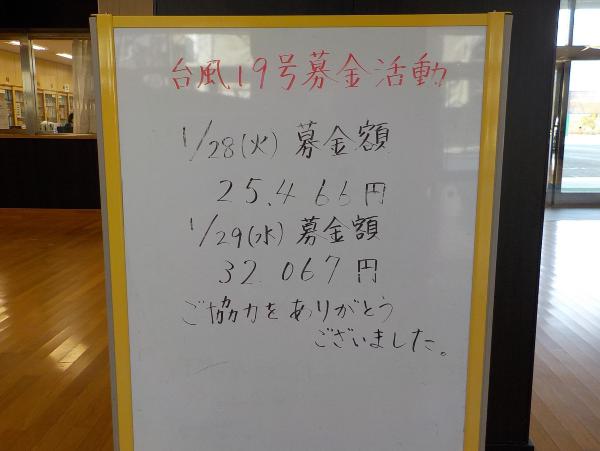 台風19号募金活動
1/28(火) 募金額
25.466円
1/29(水) 募金額
32.067円
ご協力をありがとう
ございました。